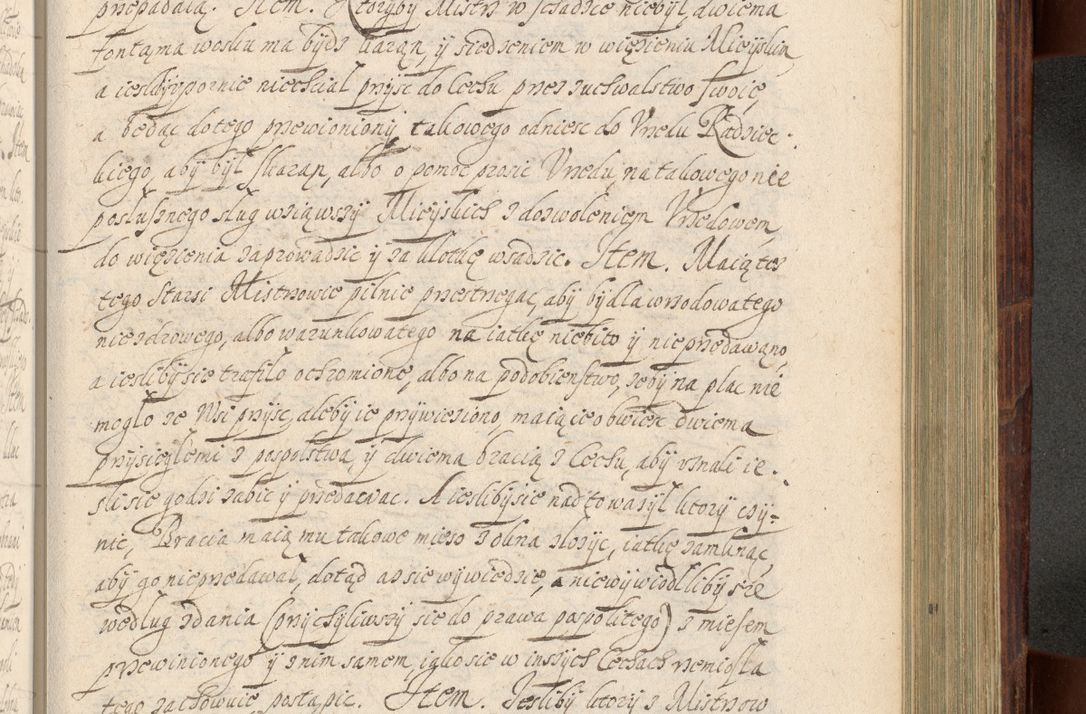 przepadaią. Item. Ktorÿby Mistrz w schadzce niebÿł, dwiema
fontąma wosku ma bÿdz karan, ÿ siedzeniem w więzieniu Mieÿskim
a ieslibÿ vpornie niechciał przÿsc do Cechu przez zuchwalstwo swoie,
a będąc do tego przewinionÿ, takowego odniesc do Vrzedu Radziec-
kiego, abÿ bÿł skaran, albo o pomoc prosic Vrzedu, na takowego nie
posłusznego sług wziąwszÿ Mieÿskich z dozwoleniem Vrzedowem,
do więzienia zaprowadzic ÿ za klotkę wsadzic. Item. Maią tez
tego starsi Mistrzowie pilnie przestrzegac, abÿ bÿdła wrzodowatego
niezdrowego, albo warunkowatego na iatkę niebito ÿ nieprzedawano,
a ieslibÿ sie trafiło ochromione, albo na podobienstwo, zebÿ na plac nie
mogło ze Wsi przÿsc, alebÿ ie przÿwieziono, maią ie obwiesc dwiema
przÿsięgłemi z pospolstwa, ÿ dwiema bracią z Cechu, abÿ vznali ie-
sli sie godzi zabic ÿ przedawac. A ieslibÿ sie nad to wazÿł ktorÿ czÿ-
nic, Bracia maią mu takowe mięso z okna złozÿc, iatkę zamknąc,
abÿ go nieprzedawał, dotąd az sie wÿwiedzie, a niewÿwiodłlibÿ sie
według zdania (przÿchÿliwszÿ sie do prawa pospolitego) z mięsem
przewinionego ÿ z nim samem, iako sie w inszÿch Cechach rzemiosła
tego zachowuie, postąpic. Item. Ieslibÿ ktorÿ z Mistrzow